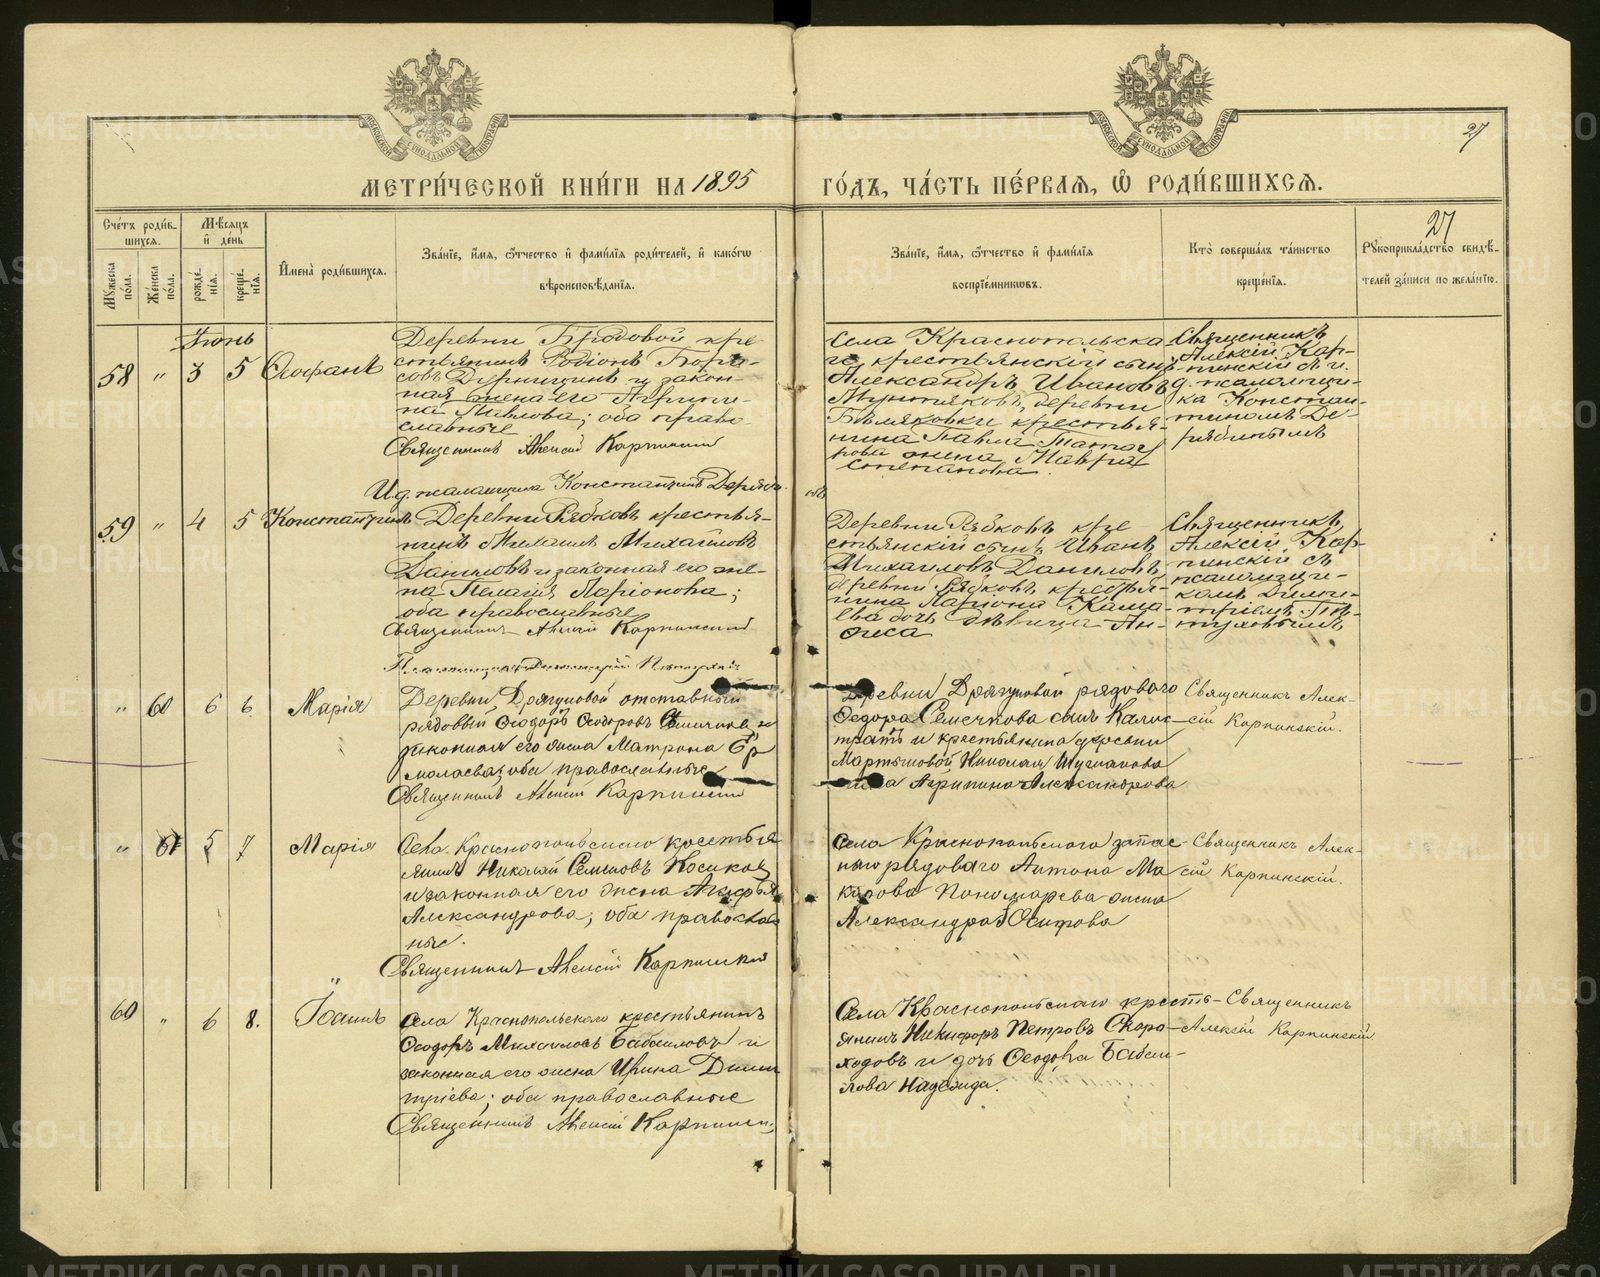 27
МЕТРИ́ЧЕСКОЙ КНИ́ГИ НА 1895 ГО́ДЪ, ЧА́СТЬ ПЕ́РВАЯ, Ѡ҆ РОДИ́ВШИХСЯ.
27
Сче́тъ роди́в-
шихся.
Мужеска по́ла.
Же́нска по́ла.
Мѣ́сяцъ
и҆ де́нь
рожде́-
нїя.
креще́-
нїя.
И҆мена̀ роди́вшихся.
Зва́нїе, и҆́мя, ѻ҆́тчество и҆ фами́лїя роди́телей, и҆ како́гѡ
вѣроисповѣ́данїя.
Зва́нїе, и҆́мя, ѻ҆́тчество и҆ фами́лїя
воспрїе́мниковъ.
Кто̀ соверша́лъ та́инство
креще́нїя.
Рукоприкла́дство свидѣ́-
телей за́писи по жела́нїю.
Іюнь
58 " 3 5 Ѳеофанъ
Деревни Бродовой кре
стьянинъ Родіонъ Бори-
совъ и закон-
ная жена его Агрипи-
на Павлова; оба право-
славные
Священникъ Алексій Карпинскій
И. д. псаломщика Константинъ Дерябинъ
Села Краснопольска
го крестьянскій сынъ
Александръ Ивановъ
деревни
Бѣляковки крестья-
нина Павла
жена Мавра
Степановна.
Священникъ
Алексій Кар-
пинскій съ и.
д. псаломщи-
ка Констан-
тиномъ Де-
рябинымъ
59 " 4 5 Константинъ
Деревни Рябковъ крестья-
нинъ Михаилъ Михайловъ
Даниловъ и законная его же-
на Пелагія Ларіонова;
оба православные
Священникъ Алексій Карпинскій
Псаломщикъ Димитрій
Деревни Рябковъ кре
стьянскій сынъ Иванъ
Михайловъ Даниловъ
деревни Рябковъ крестья-
нина Ларіона Каша-
ева дочь дѣвица Ан-
фиса
Священникъ
Алексій Кар-
пинскій съ
псаломщи-
комъ Дими-
тріемъ
" 60 6 6 Марія
Деревни Дрягуновой отставный
рядовый Ѳеодоръ Ѳеодоровъ и
законная его жена Матрона Ер
молаева; оба православные
Священникъ Алексій Карпинскій
Деревни Дрягуновой рядового
Ѳедора Семечкова сынъ Калис-
тратъ и крестьянина деревни
Мартышовой Николая
жена Агрипина Александрова
Священникъ Алек-
сій Карпинскій.
" 61 5 7 Марія
Села Краснопольскаго крестья
нинъ Николай Семеновъ Косиковъ
и законная его жена
Александрова; оба православ
ные.
Священникъ Алексій Карпинскій
Села Краснопольскаго запас-
наго рядоваго Антона Ма
карова Пономарева жена
Александра Осипова
Священникъ Алек-
сій Карпинскій.
60 " 6 8. Іоаннъ
Села Краснопольскаго крестьянинъ
Ѳеодоръ Михаиловъ Бабаиловъ и
законная его жена Ирина Дими
тріева; оба православные
Священникъ Алексій Карпинскій
Села Краснопольскаго кресть-
янинъ Никифоръ Петровъ Скоро-
ходовъ и дочь Ѳеодора Бабаи-
лова Надежда.
Священникъ
Алексій Карпинскій